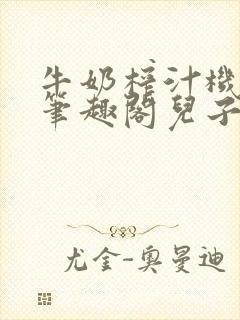 牛奶榨汁機
筆趣閣兒子
尤金-奧曼迪